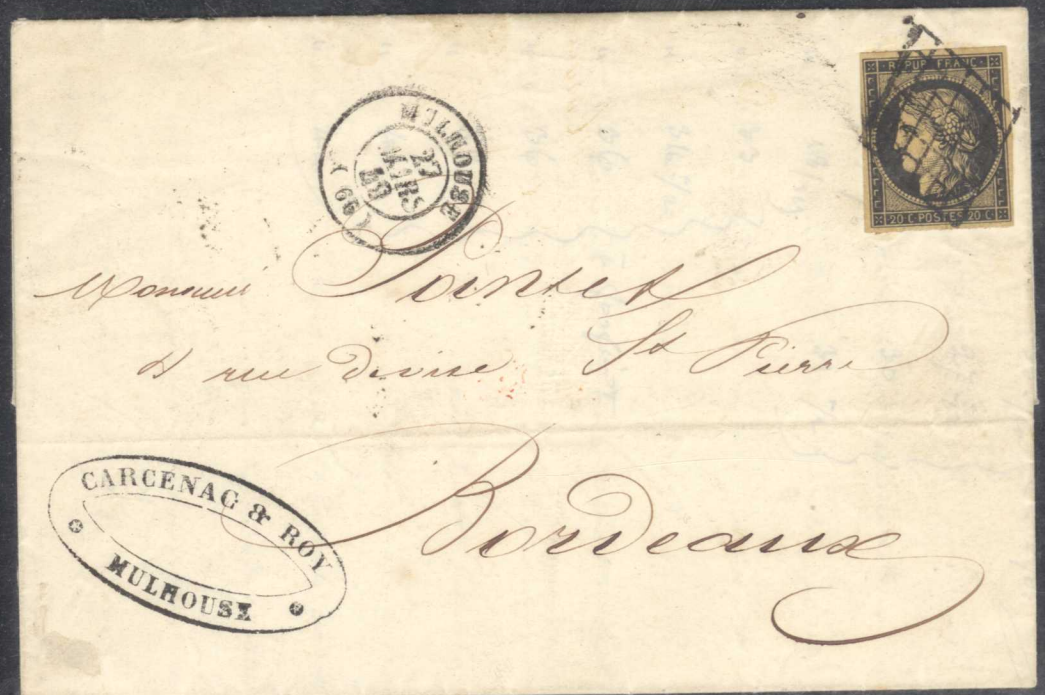 REPUB FRANC
20 C POSTES 20 C
MULHOUSE
27
MARS
(66)
Monsieur
4 rue Devise St Pierre
Bordeaux
CARCENAC & ROY
MULHOUSE